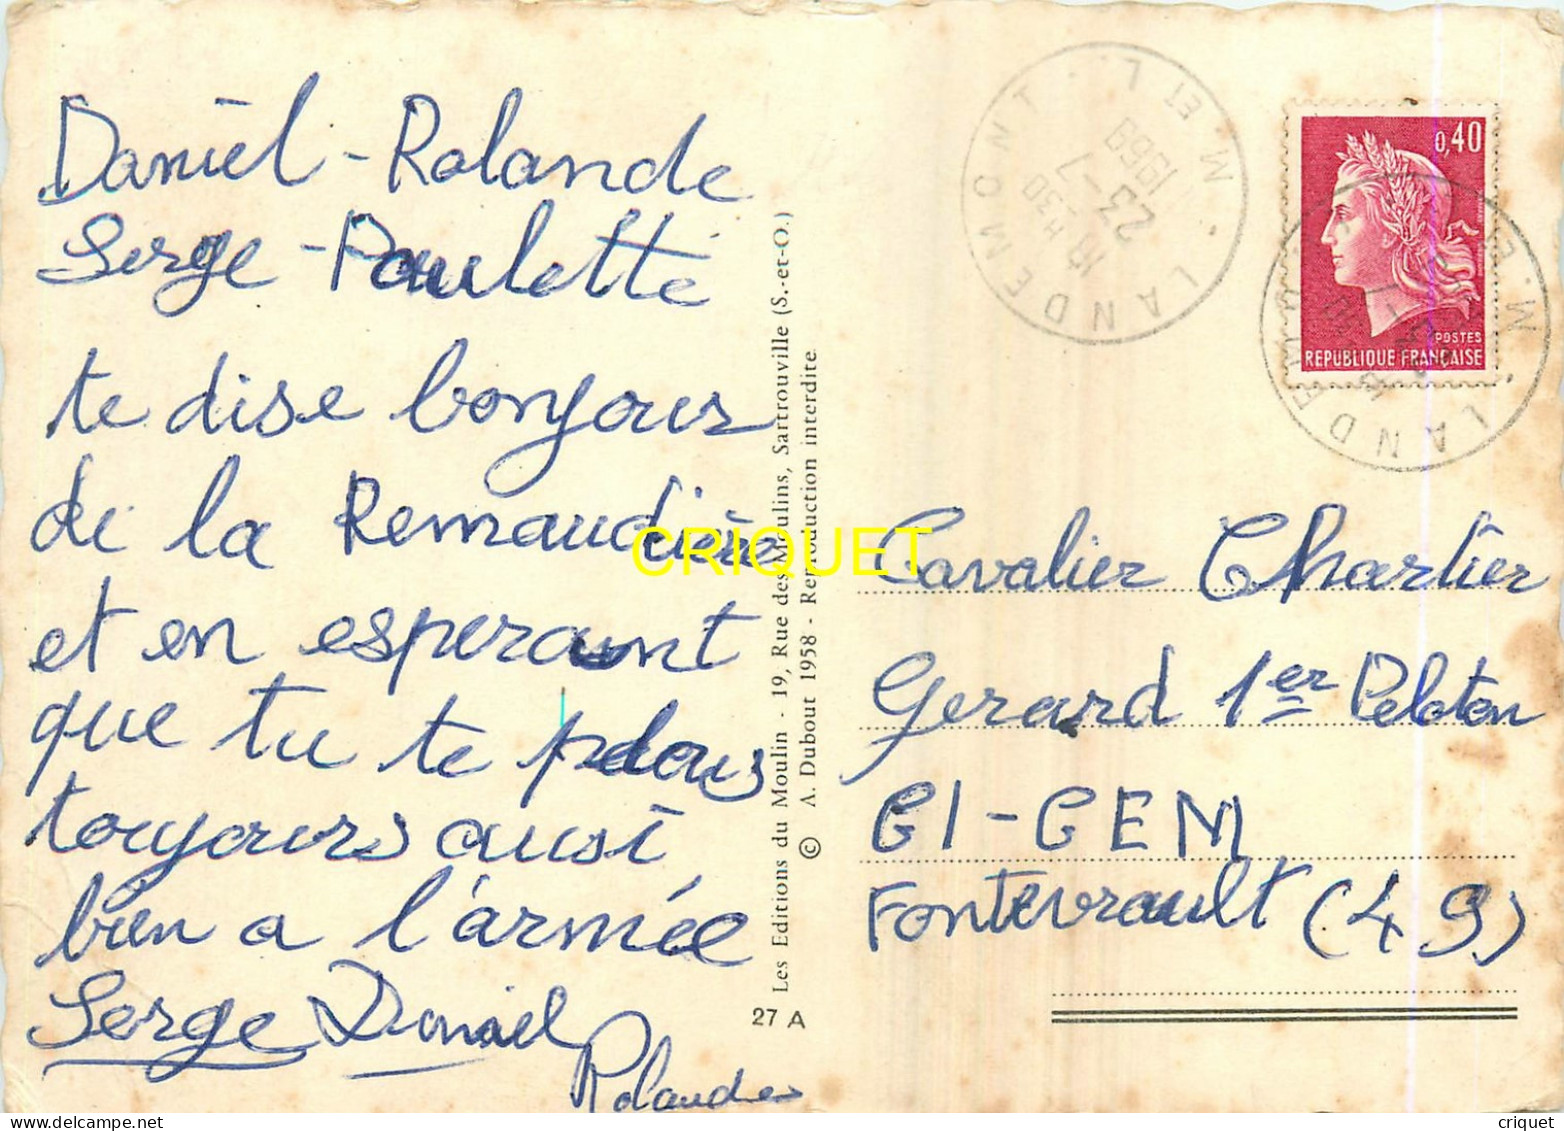 Daniel - Rolande
Serge - Paulette
te dise bonjours
de la Remaudière
et en esperant
que tu te
toujours aussi
bien a l'armée
Serge Daniel
Rolande
Les Editions du Moulin - 19, Rue des Moulins, Sartrouville (S.-et-O.)
© A. Dubout 1958 - Reproduction interdite
27 A
LANDEMONT
M. ET L.
10 H 30
23-7
1969
0,40
POSTES
REPUBLIQUE FRANÇAISE
LANDEM
M. E
Cavalier Chartier
Gerard 1er Peloton
CI-CEM
Fontevrault (49)
CRIQUET
criquet